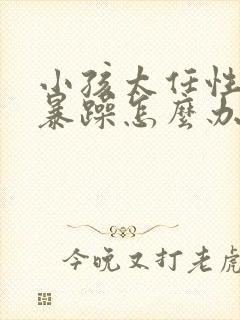 小孩太任性
暴躁怎麼办
今晚又打老虎